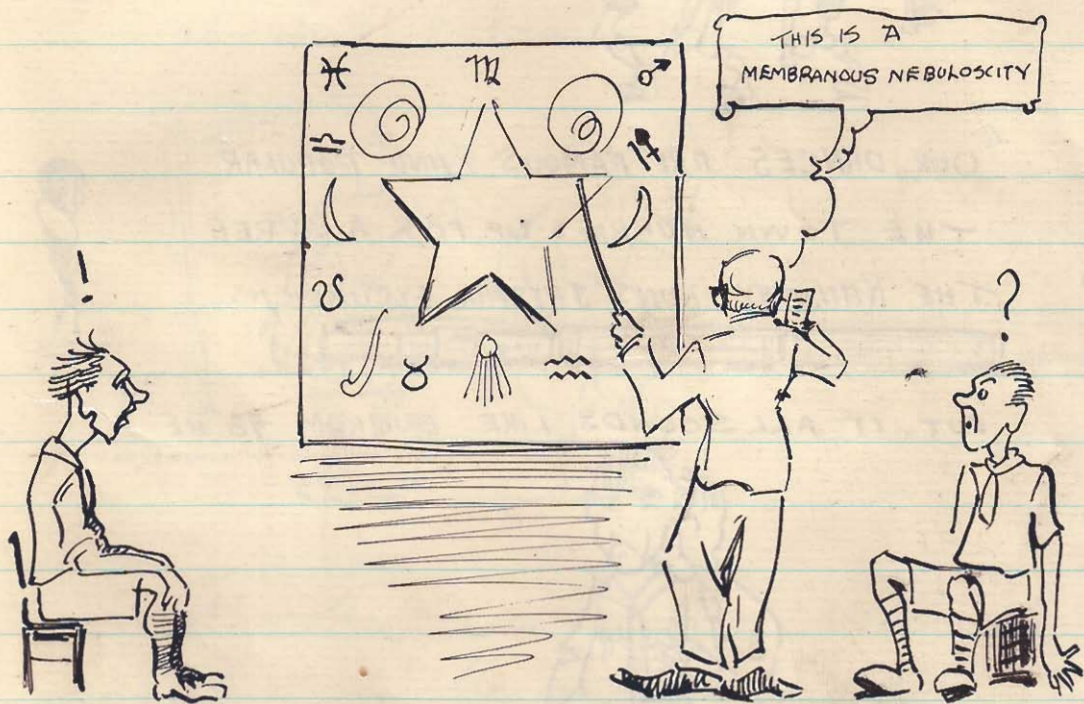 THIS IS A
MEMBRANOUS NEBULOSCITY
!
?